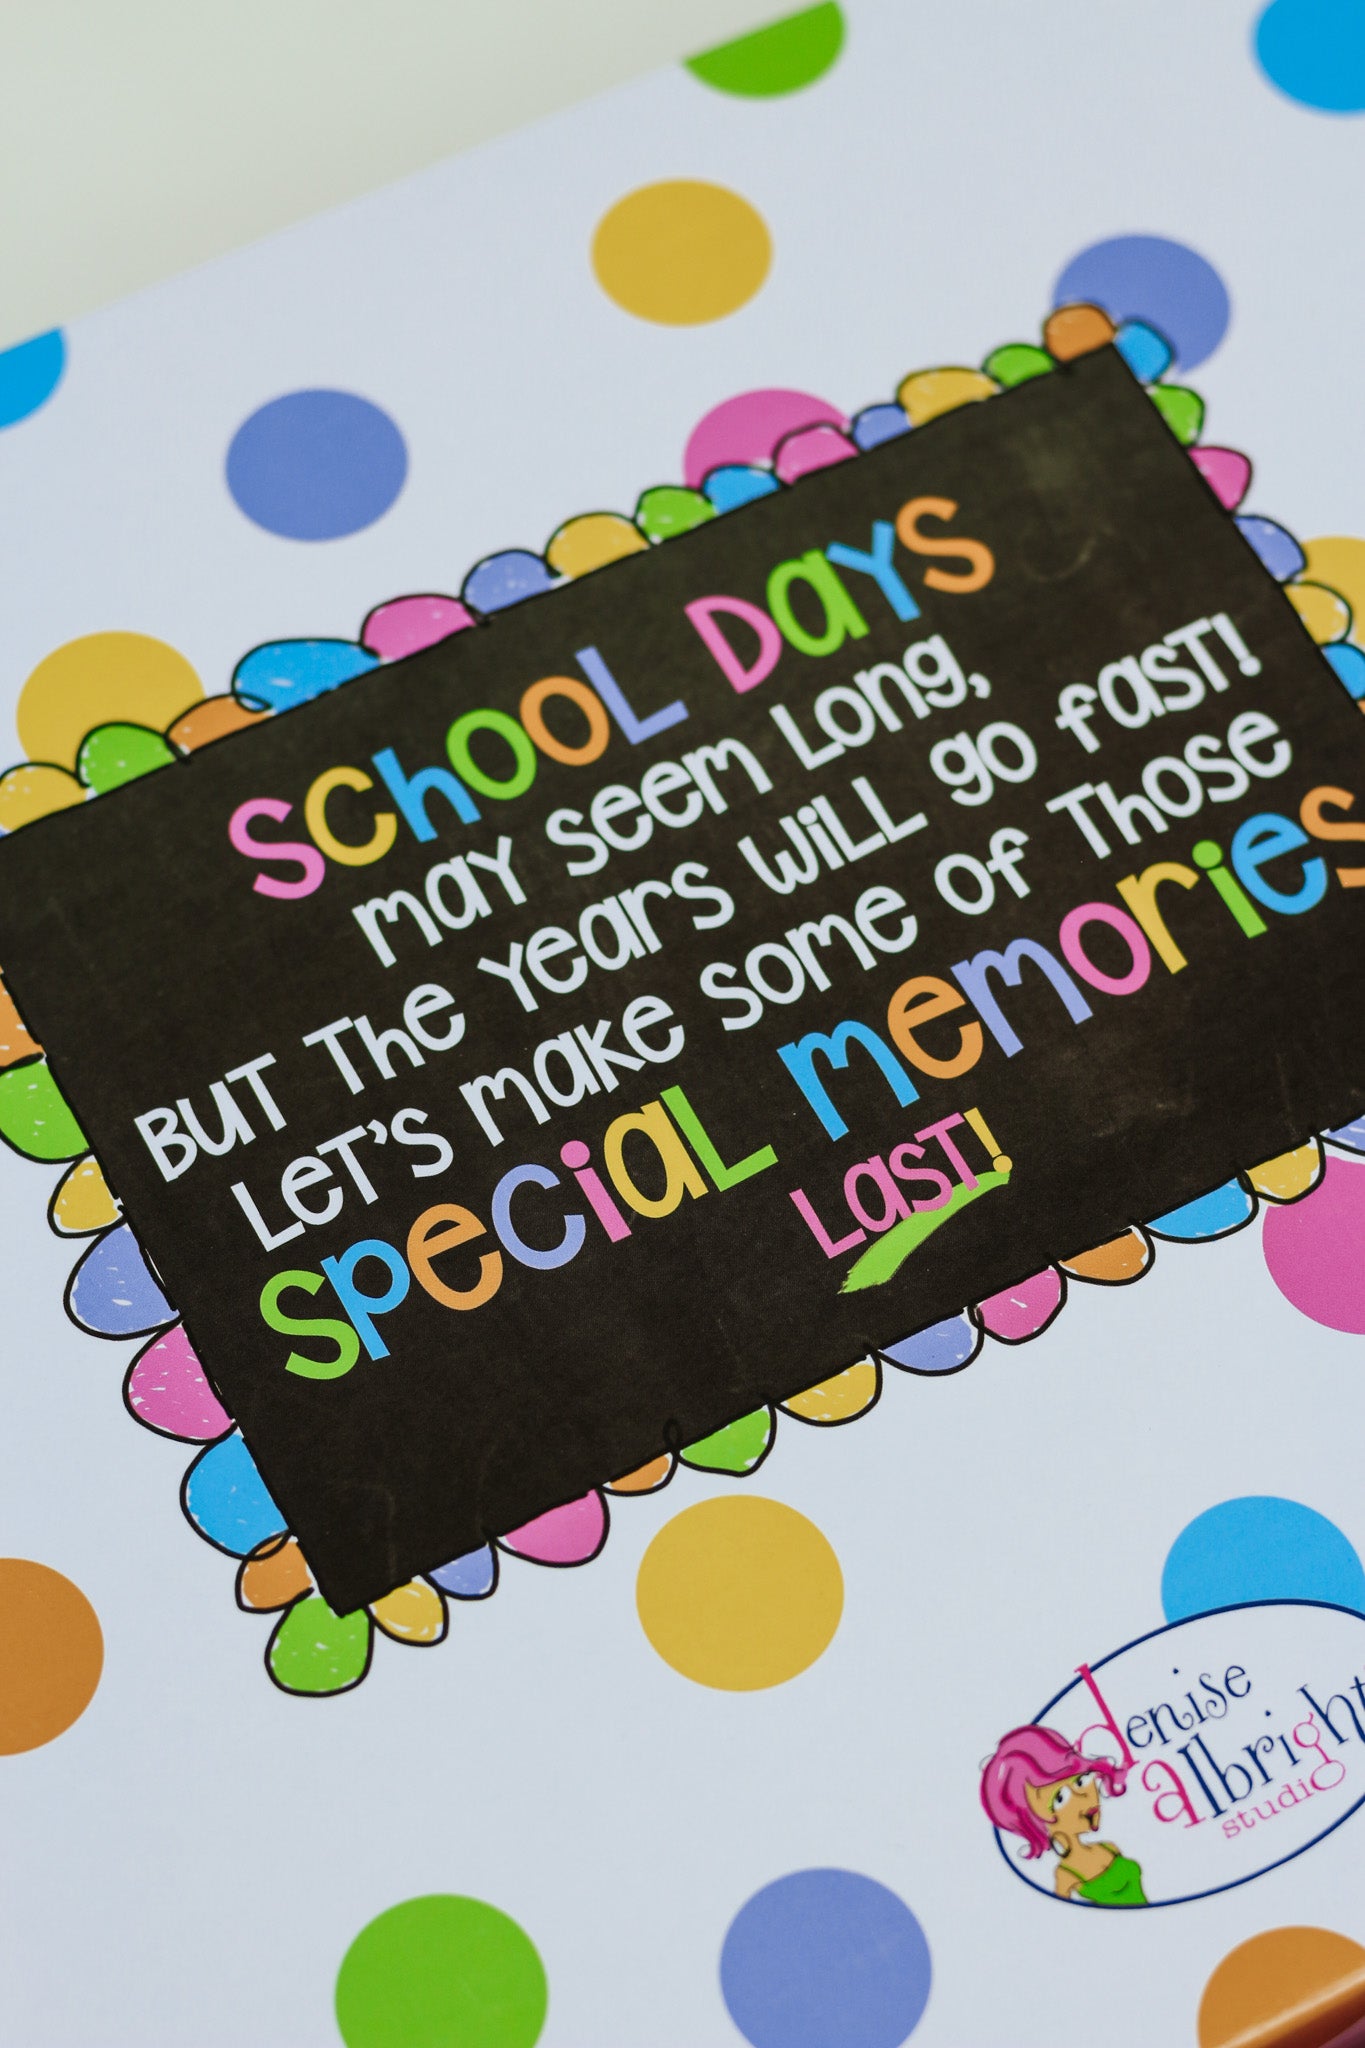 School Days
may seem long,
But the years will go fast!
Let's make some of those
special memories
last!
denise
albright
studio